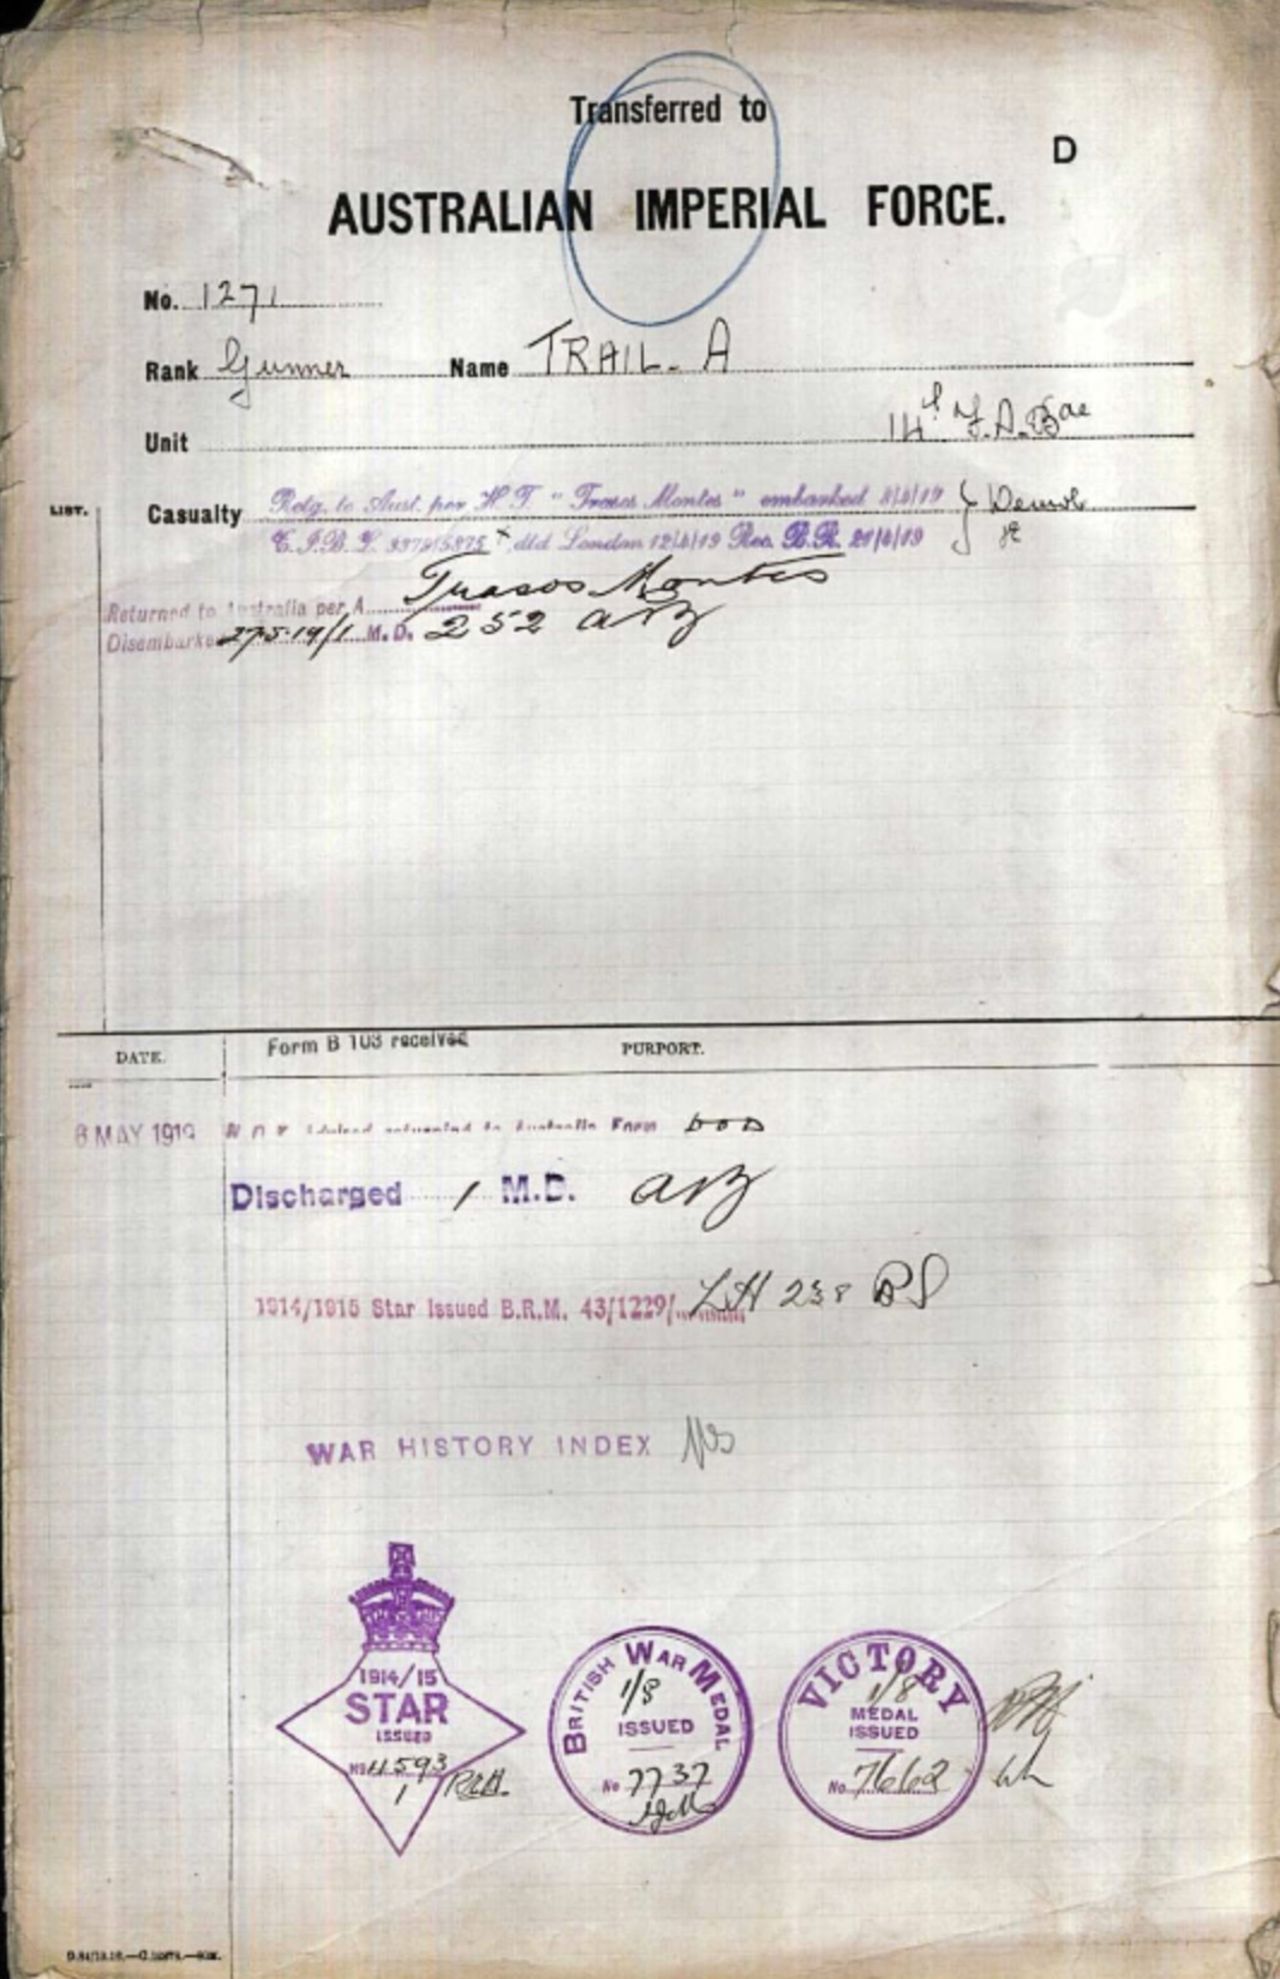 Transferred to
D
AUSTRALIAN IMPERIAL FORCE.
No. 1271
Rank Gunner Name TRAIL. A
Unit 14th F.A. Bde
LIST.
Casualty Retg. to Aust. per H.T. "Trasos Montes" embarked /4/19
dtd London 12/4/19 Rec. B.R. 21/4/19
Trasos Montes
Returned to Australia per A
Disembarked 27.5.19/1 M.D. 252
DATE. Form B 103 received PURPORT.
8 MAY 1919 returning to Australia Form
Discharged 1 M.D.
1914/1915 Star Issued B.R.M. 43/1229/ LH 238
WAR HISTORY INDEX
1914/15
STAR
ISSUED
No 11593
1
BRITISH WAR MEDAL
1/8
ISSUED
No 7737
VICTORY
1/8
MEDAL
ISSUED
No. 7662